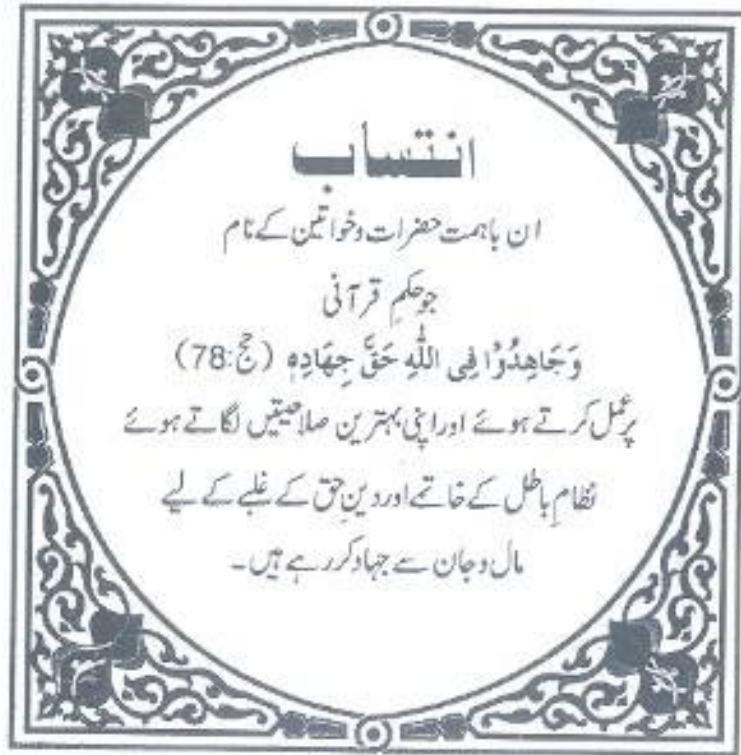 انتساب
ان باہمت حضرات و خواتین کے نام
جو حکمِ قرآنی
وَجَاهِدُوْا فِی اللّٰهِ حَقَّ جِهَادِهٖ (حج:78)
پر عمل کرتے ہوئے اور اپنی بہترین صلاحیتیں لگاتے ہوئے
نظامِ باطل کے خاتمے اور دینِ حق کے غلبے کے لیے
مال و جان سے جہاد کر رہے ہیں۔